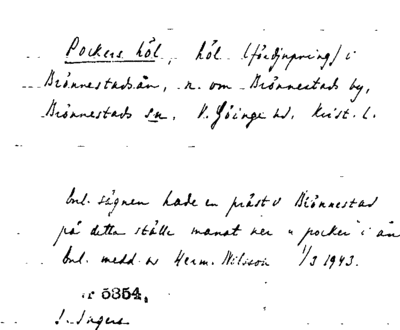 Pockers höl, höl (fördjupning) i
Brönnestadsån, n. om Brönnestads by,
Brönnestads sn. V. Göinge hd. Krist. l.
Enl. sägnen hade en präst i Brönnestad
på detta ställe manat ner "pocker" i ån
Enl. medd. av Herm. Nilsson 1/3 1943.
5354.
Ingers